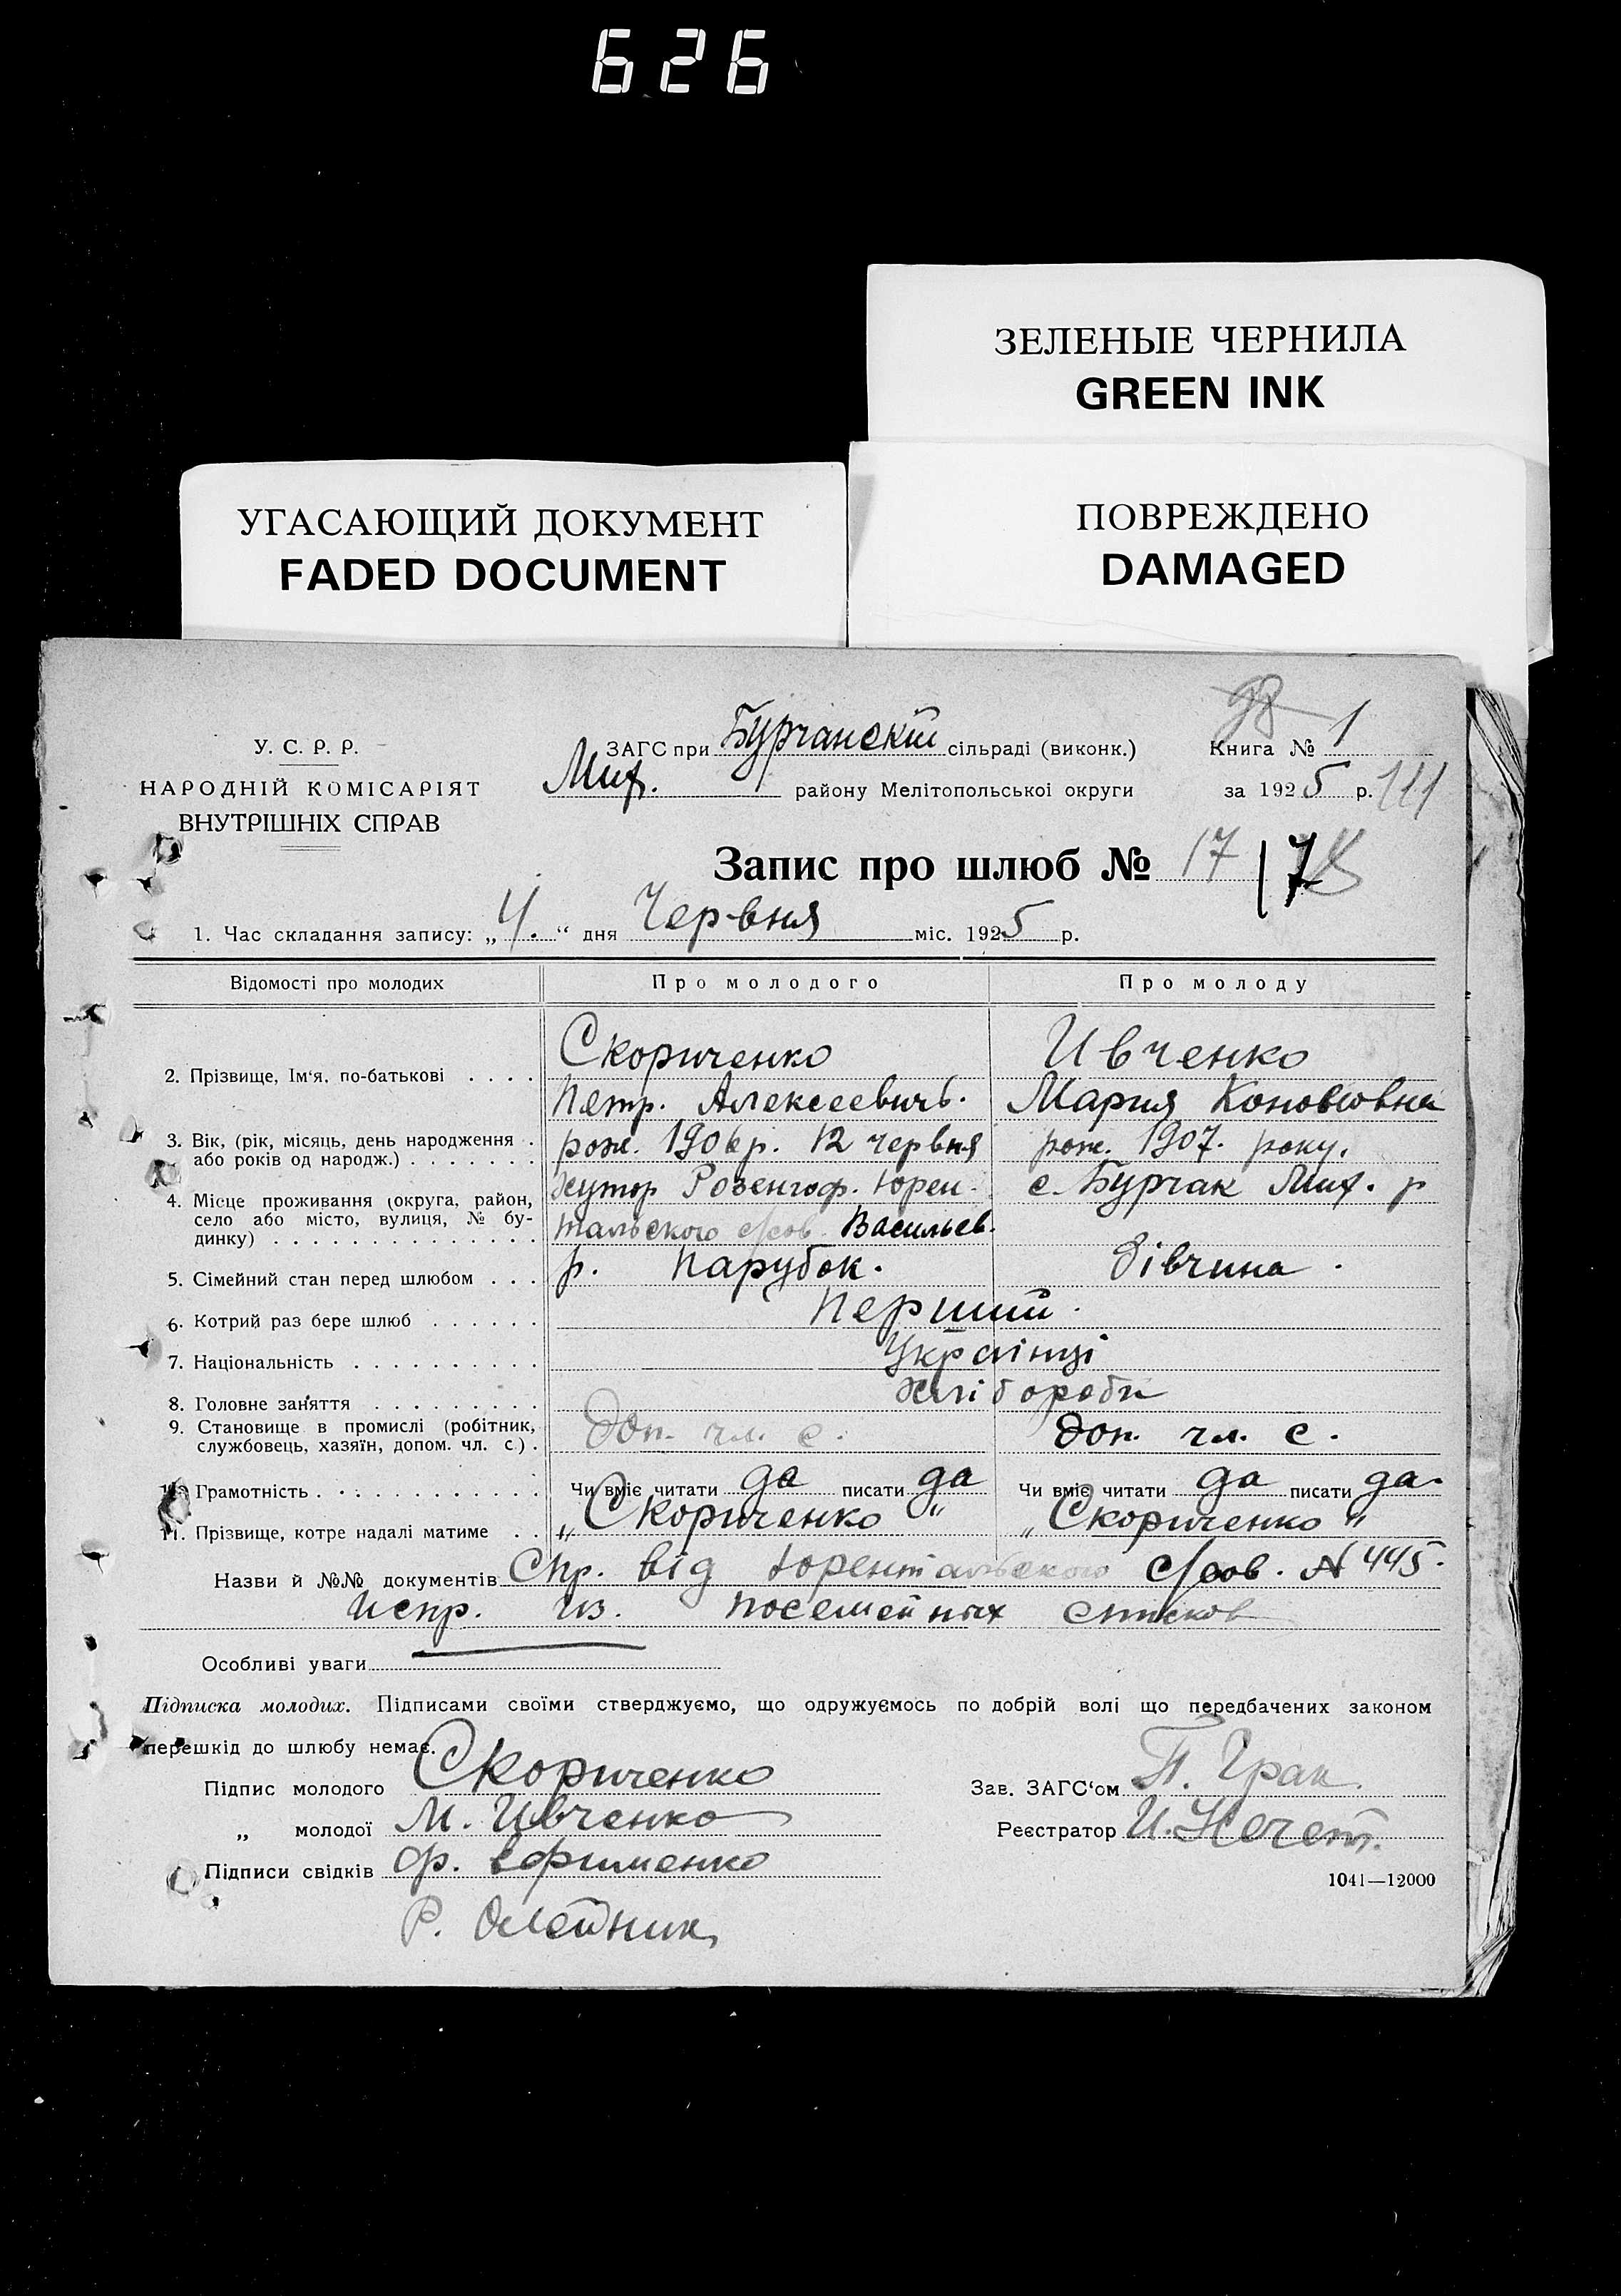 626
ЗЕЛЕНЫЕ ЧЕРНИЛА
GREEN INK
УГАСАЮЩИЙ ДОКУМЕНТ
FADED DOCUMENT
ПОВРЕЖДЕНО
DAMAGED
98
У. С. Р. Р.
НАРОДНІЙ КОМІСАРІЯТ
ВНУТРІШНІХ СПРАВ
ЗАГС при Бурчанскій сільраді (виконк.)
Мих. району Мелітопольської округи
Книга № 1
за 1925 р. 111
Запис про шлюб № 17 17
1. Час складання запису: „4.“ дня Червня міс. 1925 р.
Відомості про молодих Про молодого Про молоду
2. Прізвище, Ім'я, по-батькові . . . . Скориченко Ивченко
Петр. Алексеевичъ. Мария
3. Вік, (рік, місяць, день народження .
або років од народж.) . . . . . . . рож. 1906 р. 12 червня рож. 1907. року.
4. Місце проживання (округа, район,
село або місто, вулиця, № бу-
динку) . . . . . . . . . . . . . .
хутор Розенгоф. Юрен- с. Бурчак Мих. р
тальского с/сов. Васильев.
5. Сімейний стан перед шлюбом . . . р. Парубок. дівчина.
6. Котрий раз бере шлюб . . . . . . Перший.
7. Національність . . . . . . . . . . Українці
8. Головне заняття . . . . . . . . . Хлібороби
9. Становище в промислі (робітник,
службовець, хазяїн, допом. чл. с.) . доп. чл. с. доп. чл. с.
10. Грамотність . . . . . . . . . . . Чи вміє читати да писати да Чи вміє читати да писати да.
11. Прізвище, котре надалі матиме . . „Скориченко“ „Скориченко“
Назви й №№ документів Спр. від Юрентальского с/сов. № 445.
Испр. из. посемейных списков
Особливі уваги
Підписка молодих. Підписами своїми стверджуємо, що одружуємось по добрій волі що передбачених законом
перешкід до шлюбу немає.
Підпис молодого Скориченко
„ молодої М. Ивченко
Підписи свідків Ф. Ефименко
Р. Олейник
Зав. ЗАГС'ом П. Грак.
Реєстратор И.
1041—12000